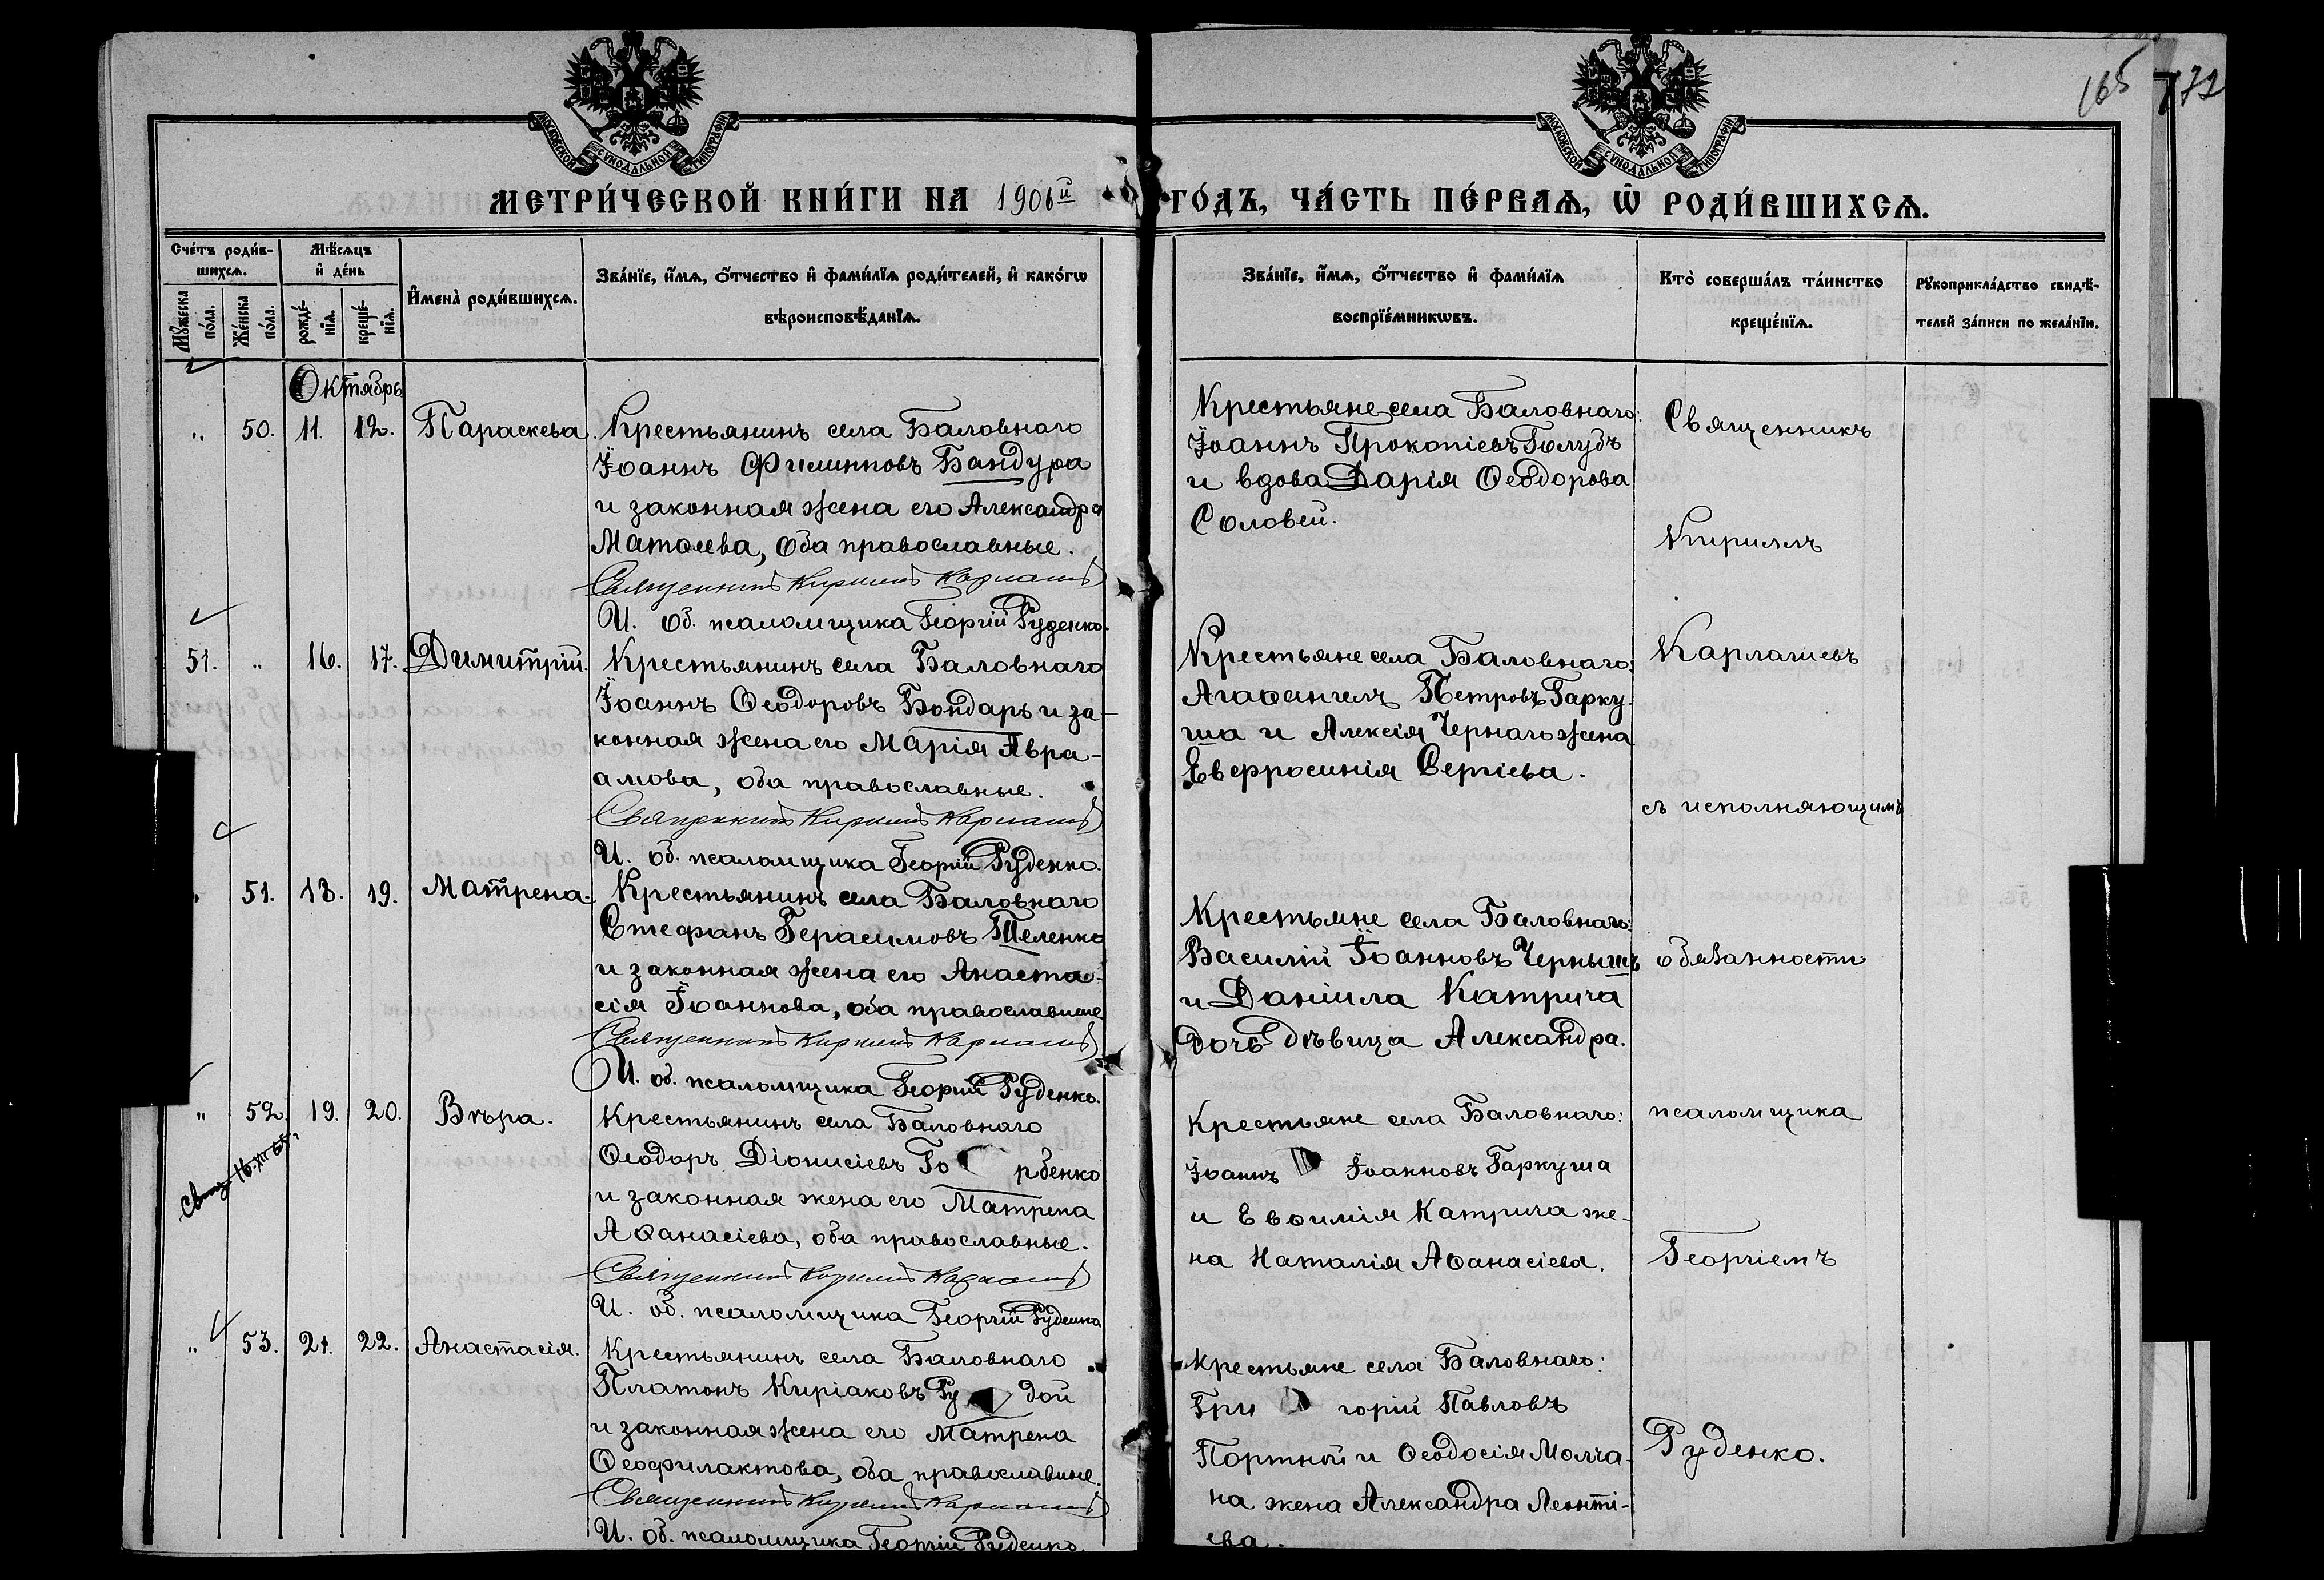 165 172
МОСКОВСКОЙ СѴНОДАЛЬНОЙ ТИПОГРАФІИ
МОСКОВСКОЙ СѴНОДАЛЬНОЙ ТИПОГРАФІИ
МЕТРИ́ЧЕСКОЙ КНИ́ГИ НА 1906й ГО́ДЪ, ЧА́СТЬ ПЕ́РВАѦ, Ѿ РОДИ́ВШИХСѦ.
Сче́тъ роди́в-
шихсѧ.
Мѣ́сѧцъ
и҆ де́нь
Мꙋ́жеска
по́ла.
Же́нска
по́ла.
рожде́-
нїѧ.
креще́-
нїѧ.
И҆мена̀ роди́вшихсѧ.
Зва́нїе, и҆́мѧ, ѻ҆́тчество и҆ фами́лїѧ роди́телей, и҆ како́гѡ
вѣроисповѣ́данїѧ.
Зва́нїе, и҆́мѧ, ѻ҆́тчество и҆ фами́лїѧ
воспрїе́мникѡвъ.
Кто̀ соверша́лъ та́инство
креще́нїѧ.
Рꙋкоприкла́дство свидѣ́-
телей за́писи по жела́нїю.
Октябрь
" 50. 11. 12. Параскева. Крестьянинъ села Баловнаго
Іоаннъ Филипповъ Бандура
и законная жена его Александра
Матѳеева, оба православные.
Священникъ Кириллъ
И. об. псаломщика Георгій Руденко.
Крестьяне села Баловнаго:
Іоаннъ Прокопіевъ Голубъ
и вдова Дарія Ѳеодорова
Соловей.
Священникъ
Кириллъ
51. " 16. 17. Димитрій. Крестьянинъ села Баловнаго
Іоаннъ Ѳеодоровъ Бондарь и за-
конная жена его Марія Авра-
амова, оба православные.
Священникъ Кириллъ
И. об. псаломщика Георгій Руденко.
Крестьяне села Баловнаго:
Агаѳангелъ Петровъ Гарку-
ша и Алексія Чернаго жена
Евфросинія Сергіева.
Карлашевъ
съ исполняющимъ
51. 18. 19. Матрена. Крестьянинъ села Баловнаго
Стефанъ Герасимовъ Теленко
и законная жена его Анаста-
сія Іоаннова, оба православные
Священникъ Кириллъ
И. об. псаломщика Георгій Руденко.
Крестьяне села Баловнаго:
Василій Іоанновъ Чернышъ
и Даніила Катрича
дочь дѣвица Александра.
обязанности
" 52. 19. 20. Вѣра. Крестьянинъ села Баловнаго
Ѳеодоръ Діонисіевъ Го рбенко
и законная жена его Матрена
Аѳанасіева, оба православные.
Священникъ Кириллъ
И. об. псаломщика Георгій Руденко
Крестьяне села Баловнаго:
Іоаннъ Іоанновъ Гаркуша
и Евѳимія Катрича же-
на Наталія Аѳанасіева.
псаломщика
Георгіемъ
" 53. 21. 22. Анастасія. Крестьянинъ села Баловнаго
Платонъ Киріаковъ Ру дой
и законная жена его Матрена
Ѳеофилактова, оба православные.
Священникъ Кириллъ
И. об. псаломщика Георгій Руденко.
Крестьяне села Баловнаго:
Гри горій Павловъ
Портной и Ѳеодосія Молча-
на жена Александра Леонті-
ева.
Руденко.